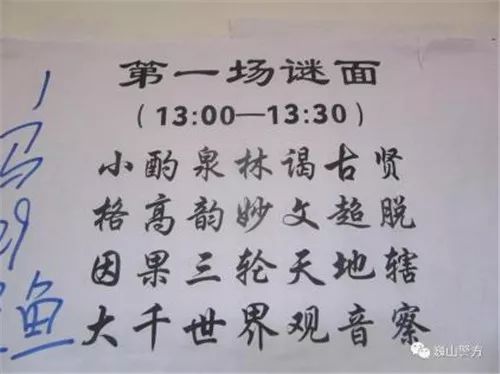 第一场谜面
(13:00—13:30)
小酌泉林谒古贤
格高韵妙文超脱
因果三轮天地辖
大千世界观音察
鱼
巍山警方